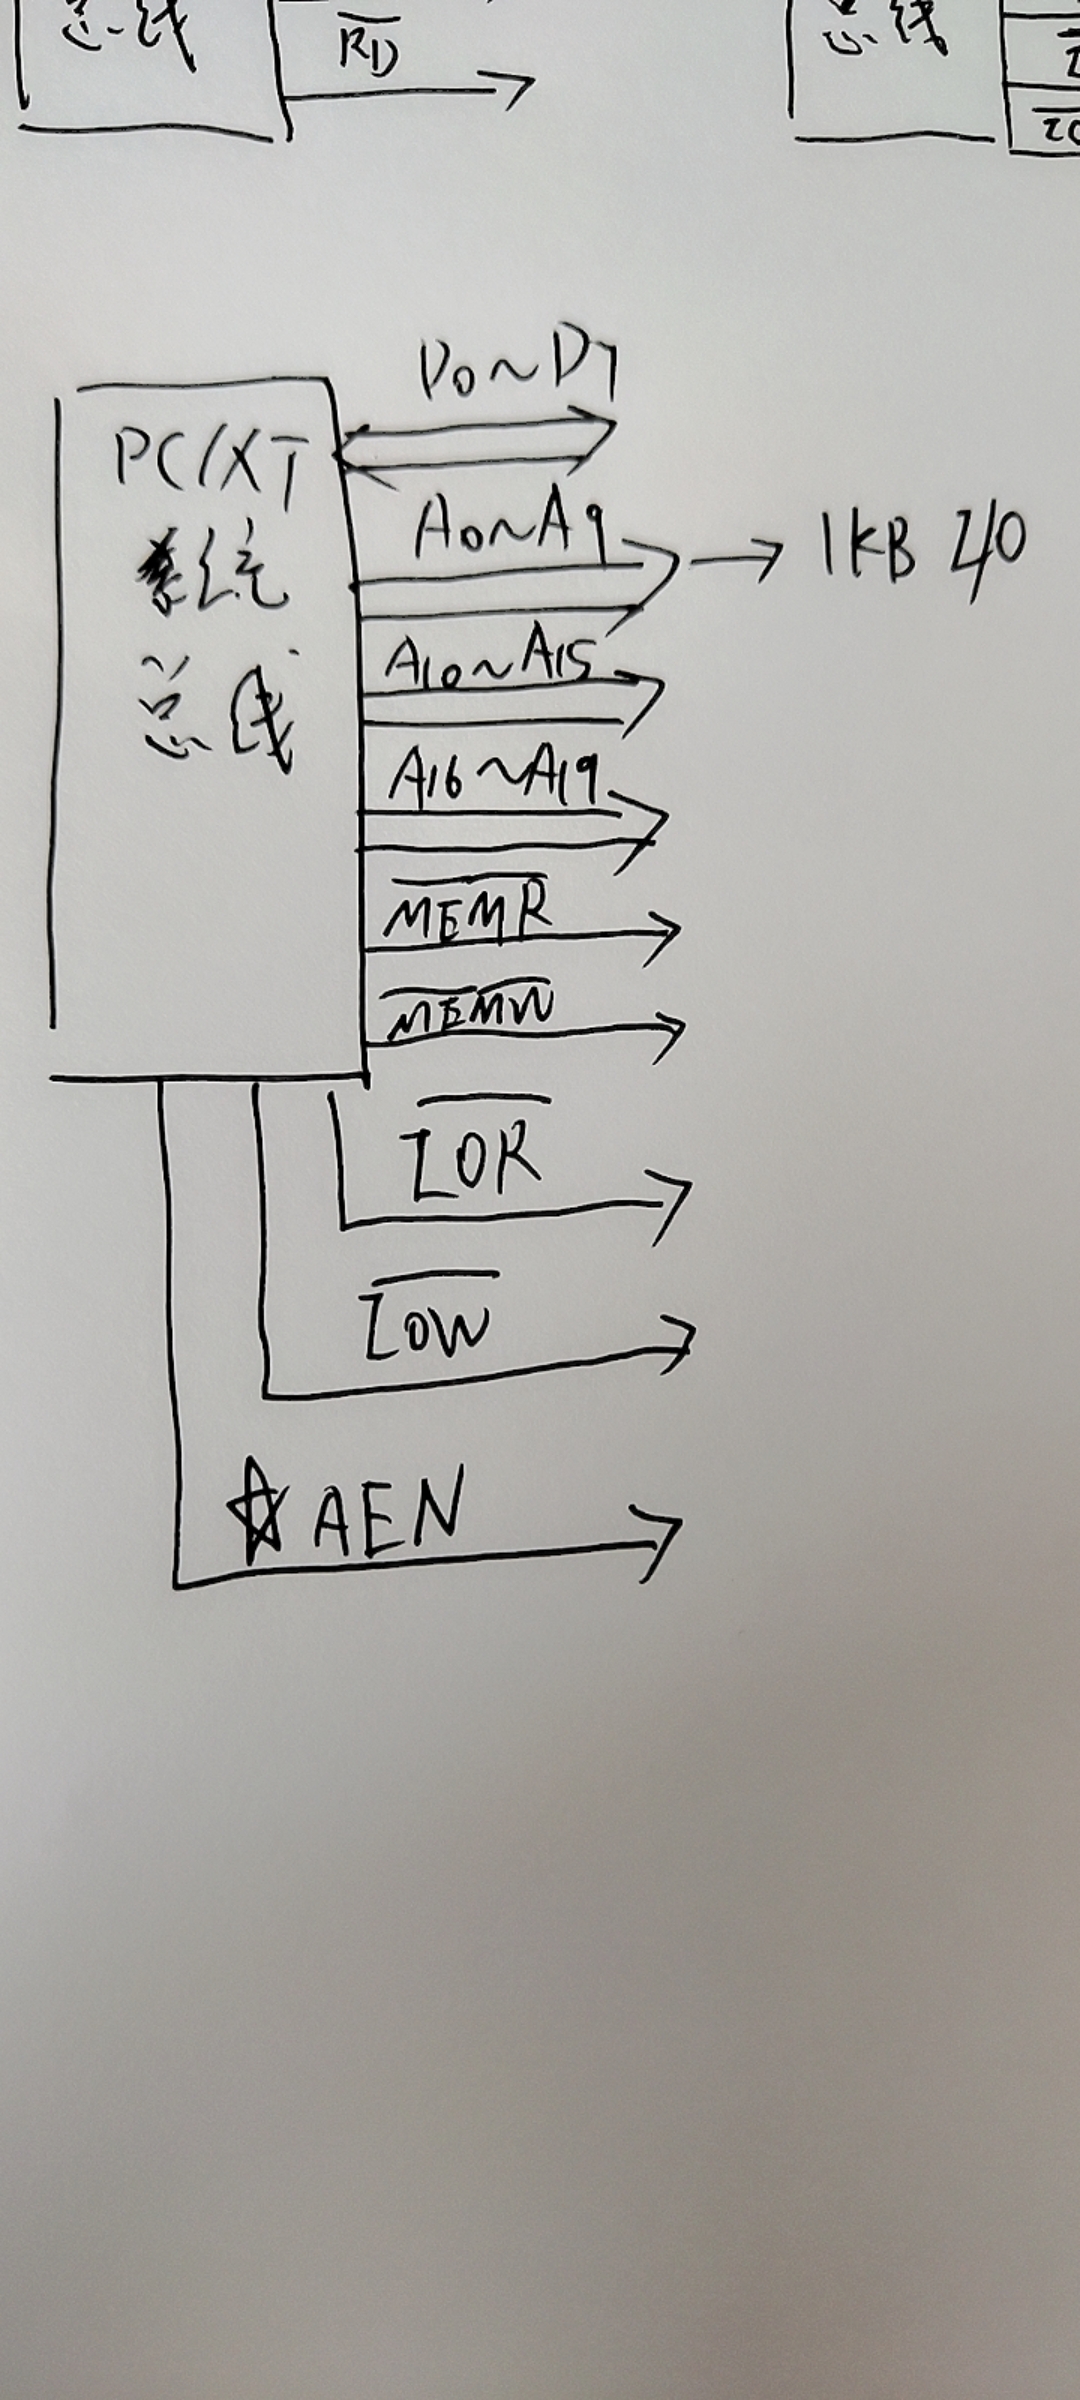 总线
R̅D̅
总线
D0~D7
PC/XT
系统
总线
A0~A9
1KB I/O
A10~A15
A16~A19
M̅E̅M̅R̅
M̅E̅M̅W̅
I̅O̅R̅
I̅O̅W̅
☆AEN